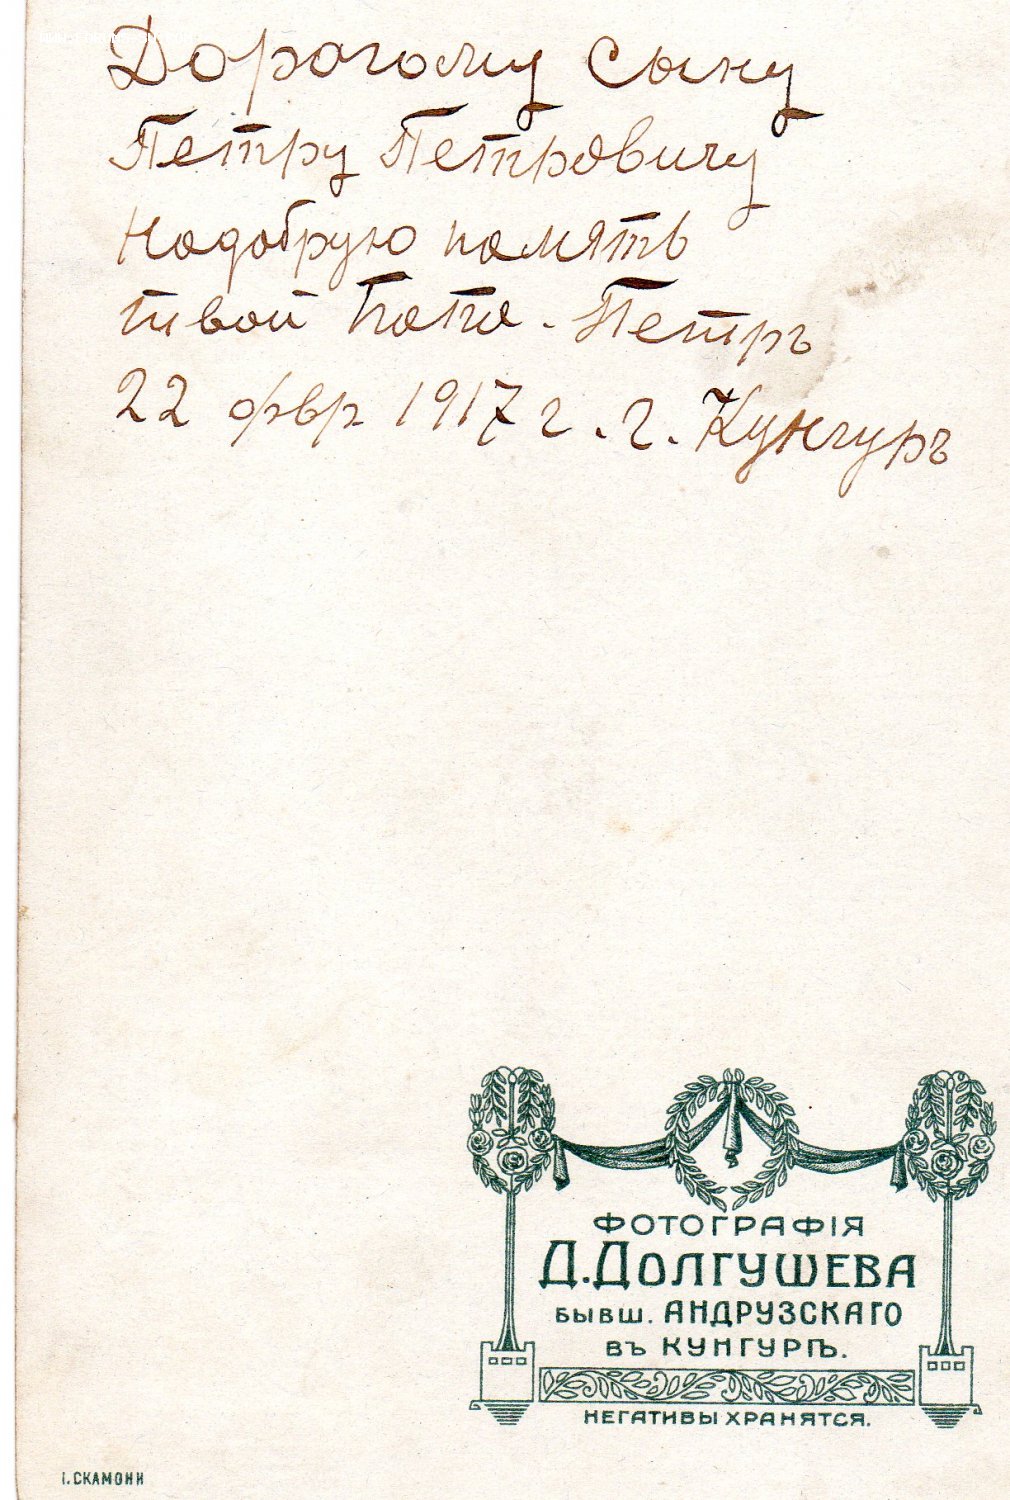 Дорогому Сыну
Петру Петровичу
Надобрую память
твой Папа. Петръ
22 фвр 1917 г. г. Кунгуръ
ФОТОГРАФІЯ
Д.ДОЛГУШЕВА
БЫВШ. АНДРУЗСКАГО
ВЪ КУНГУРѢ.
НЕГАТИВЫ ХРАНЯТСЯ.
І.СКАМОНИ